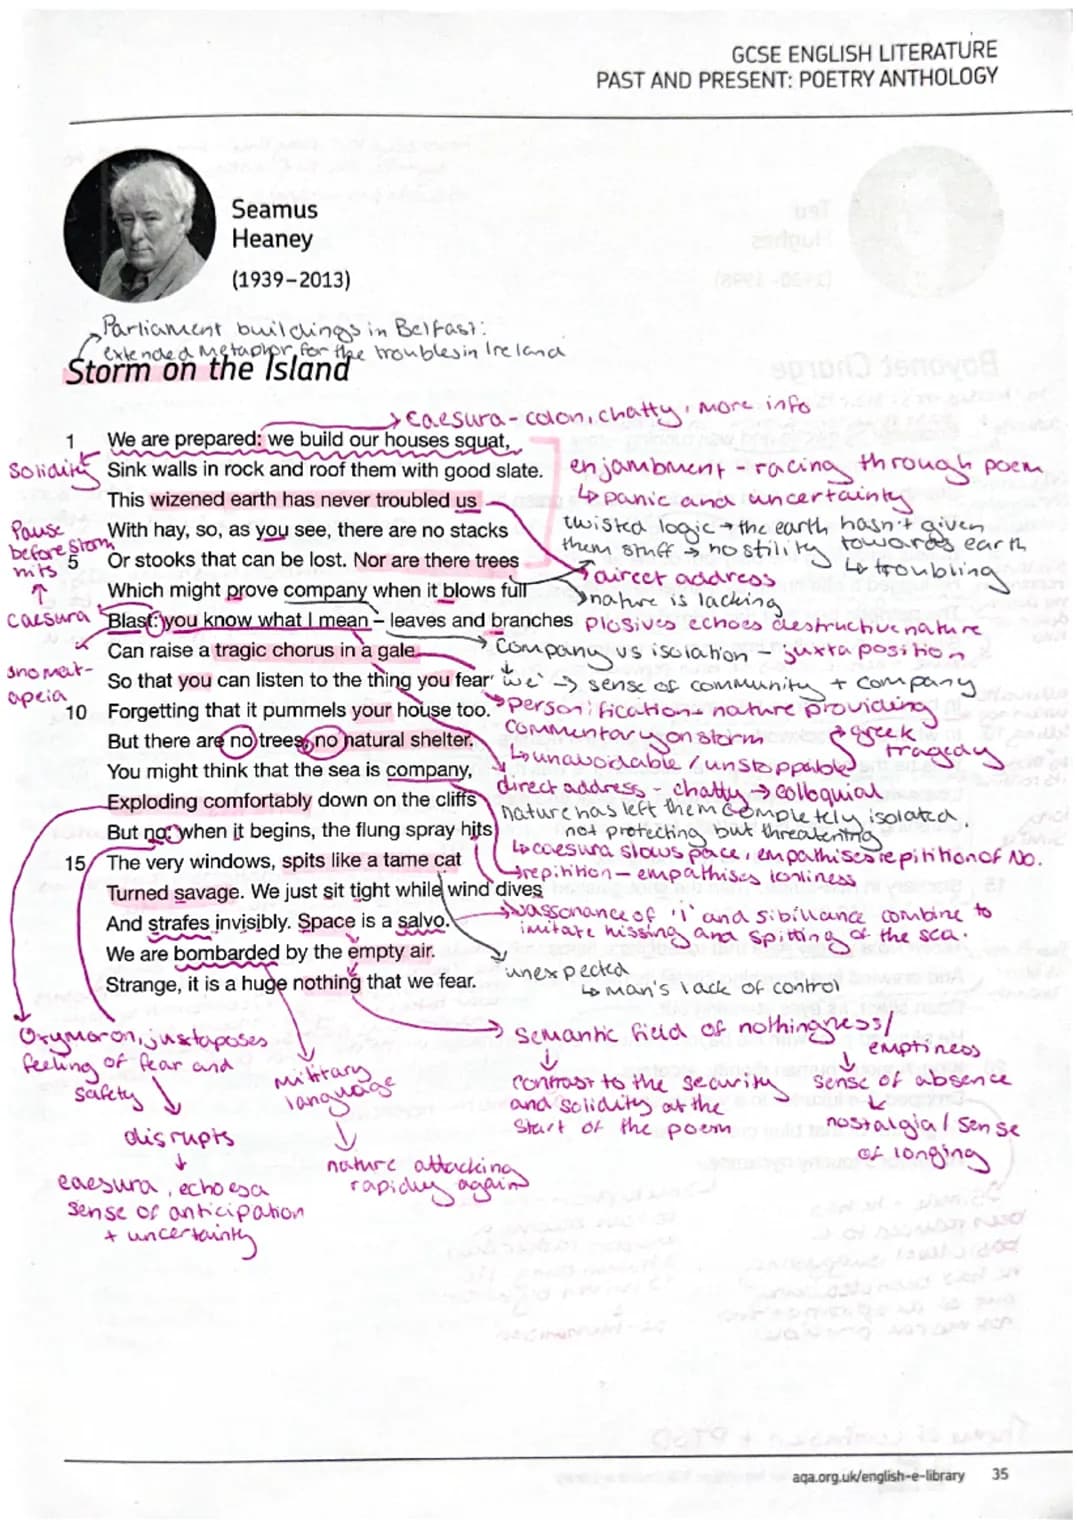 GCSE ENGLISH LITERATURE
PAST AND PRESENT: POETRY ANTHOLOGY
Seamus
Heaney
(1939–2013)
Parliament buildings in Belfast:
extended metaphor for the troubles in Ireland
Storm on the Island
caesura - colon, chatty, more info
1 We are prepared: we build our houses squat,
Solidity
Sink walls in rock and roof them with good slate.
enjambment - racing through poem
↳ panic and uncertainty
This wizened earth has never troubled us
With hay, so, as you see, there are no stacks
twisted logic → the earth hasn't given
them stuff → hostility towards earth
↳ troubling
Pause
before storm
hits
5 Or stooks that can be lost. Nor are there trees
direct address
Which might prove company when it blows full
nature is lacking
caesura
Blast: you know what I mean – leaves and branches
plosives echoes destructive nature
Can raise a tragic chorus in a gale
company vs isolation - juxtaposition
onomat-
apeia
So that you can listen to the thing you fear
'we' → sense of community + company
10 Forgetting that it pummels your house too.
personification → nature providing
commentary on storm
greek
tragedy
↳ unavoidable / unstoppable
But there are no trees, no natural shelter.
You might think that the sea is company,
direct address - chatty → colloquial
Exploding comfortably down on the cliffs
nature has left them completely isolated.
not protecting but threatening
But no: when it begins, the flung spray hits
↳ caesura slows pace, empathises repitition of No.
15 The very windows, spits like a tame cat
repitition - empathises lonliness
Turned savage. We just sit tight while wind dives
And strafes invisibly. Space is a salvo.
assonance of 'i' and sibillance combine to
imitate hissing and spitting of the sea.
We are bombarded by the empty air.
unexpected
↳ man's lack of control
Strange, it is a huge nothing that we fear.
Oxymoron, juxtaposes
feeling of fear and
safety
disrupts
caesura, echoes a
sense of anticipation
+ uncertainty
military
language
nature attacking
rapidly again
semantic field of nothingness/
emptiness
contrast to the security
and solidity at the
start of the poem
sense of absence
nostalgia / sense
of longing
aqa.org.uk/english-e-library 35